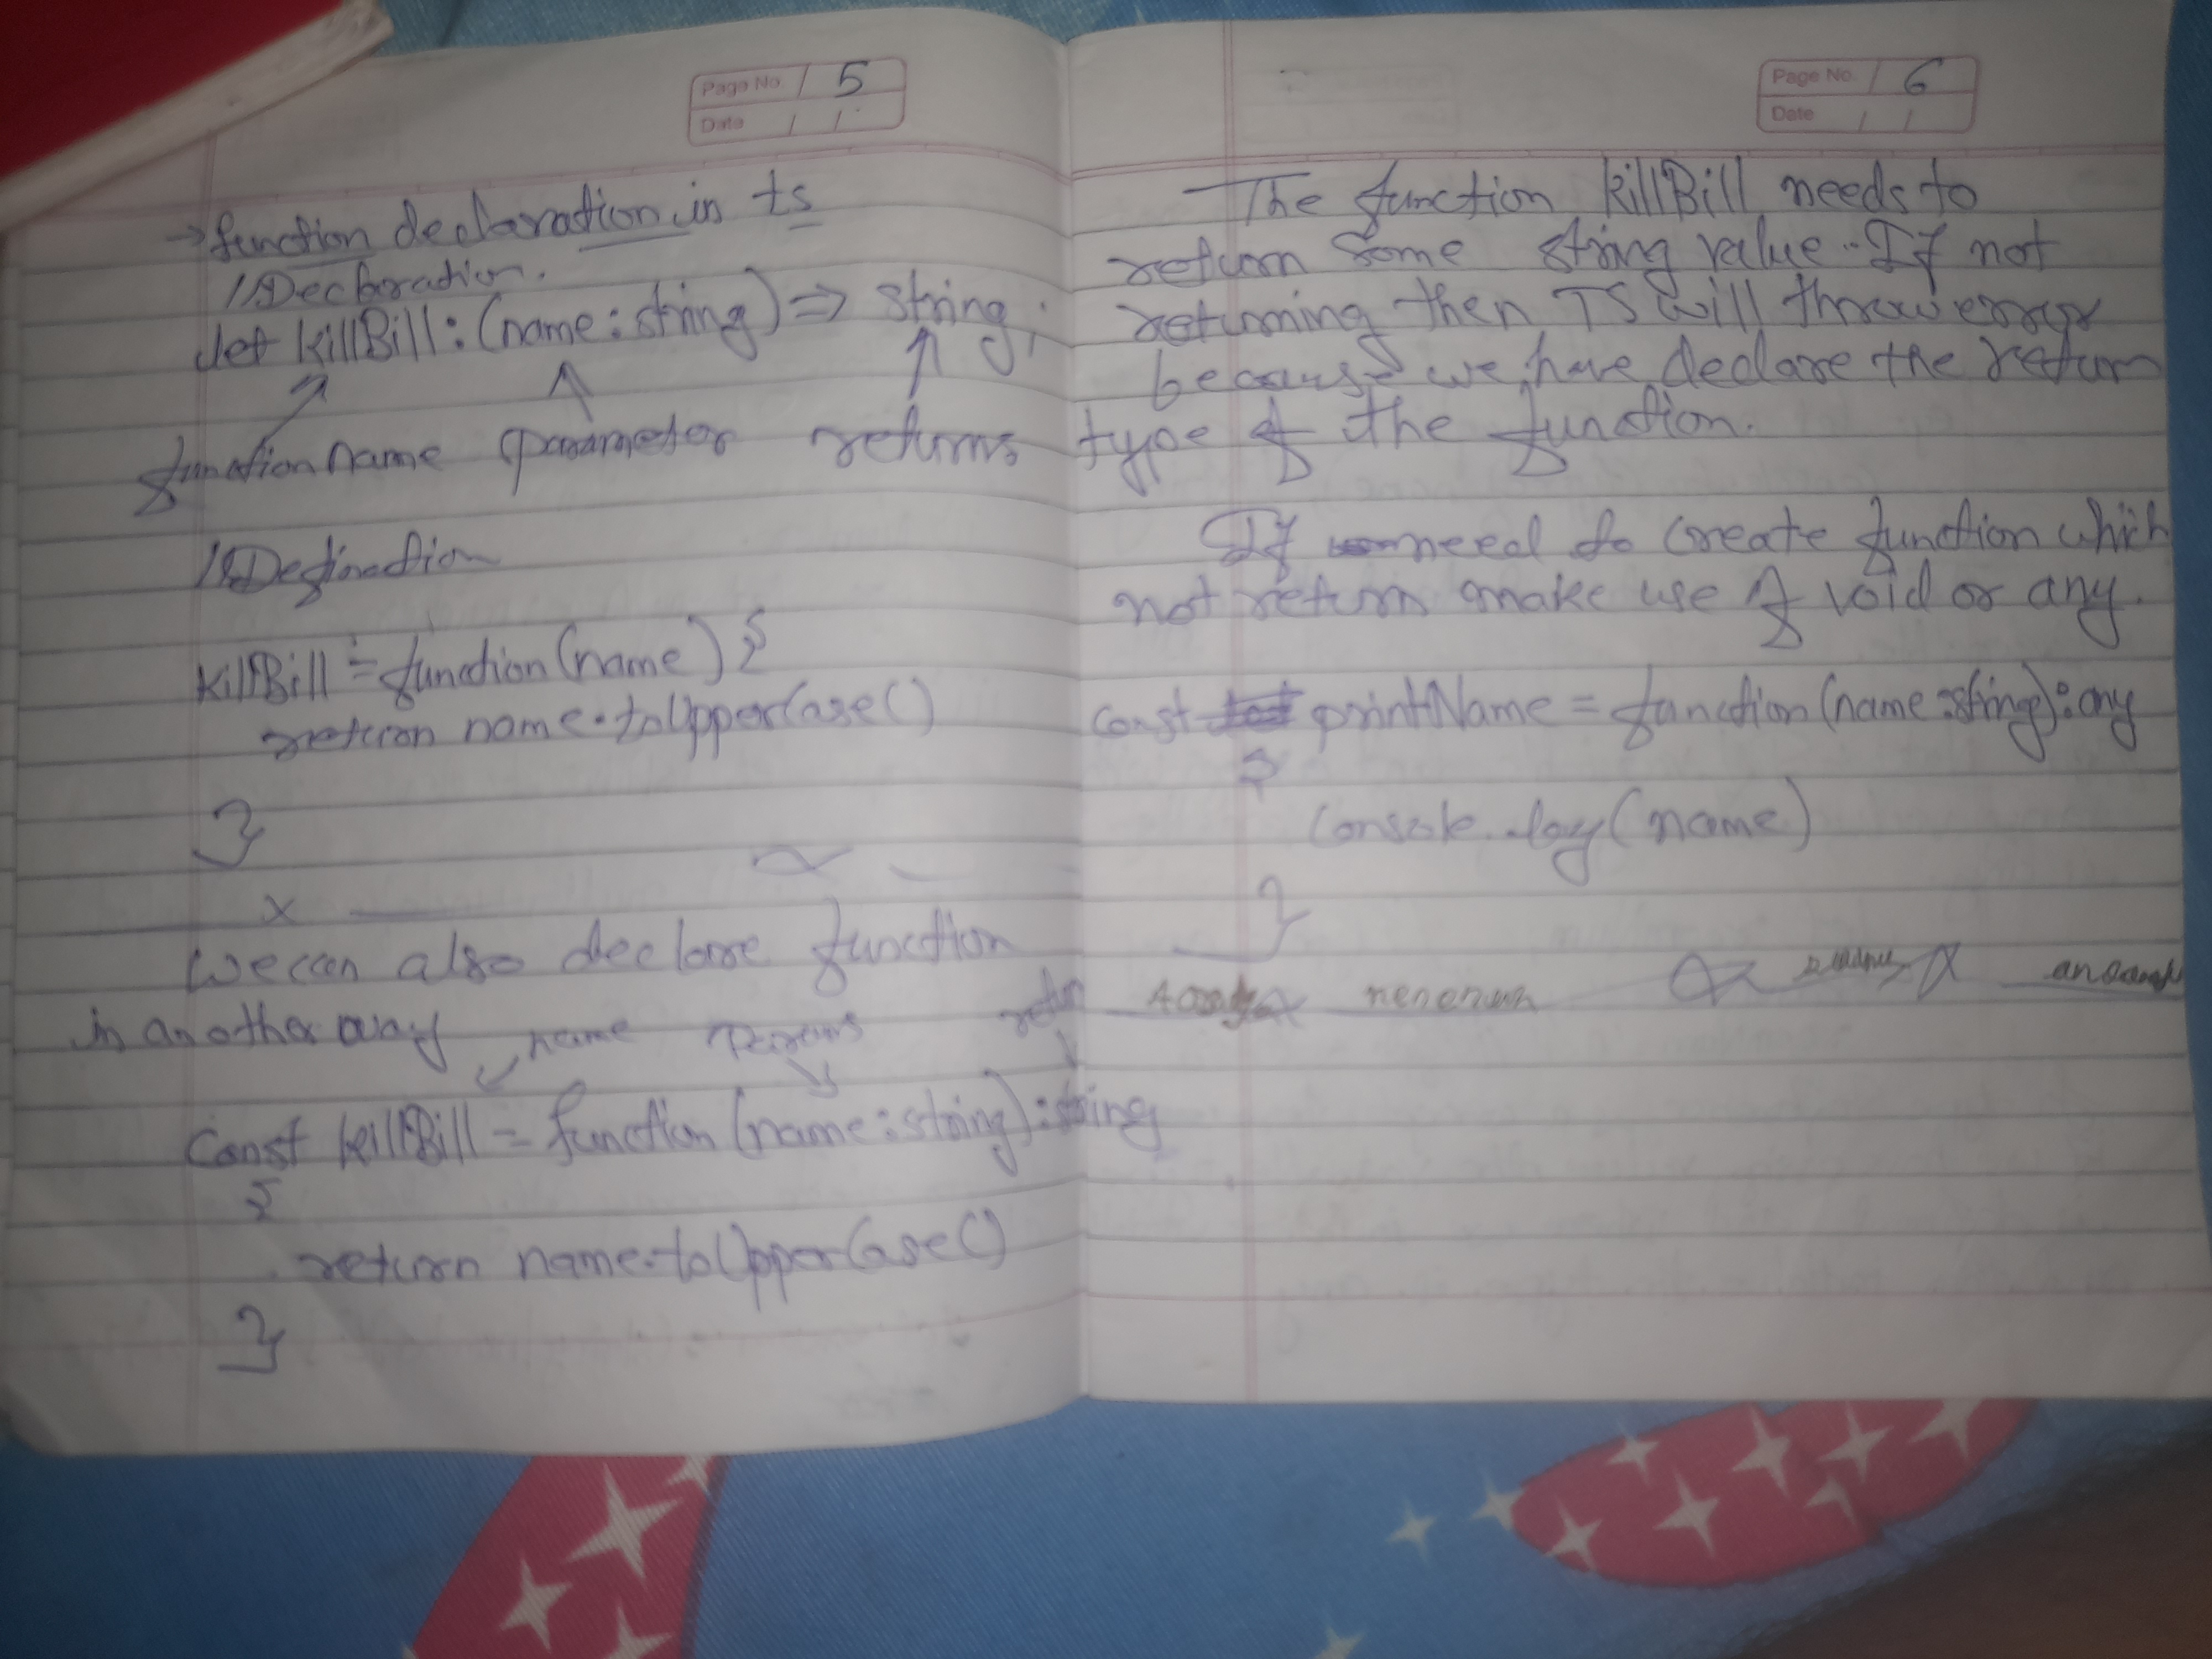 Page No. 5
Date
→ function declaration in ts
// Declaration.
let killBill : (name : string) => string;
function name parameter returns
// Defination
killBill = function (name) {
return name.toUpperCase()
}
x
We can also declare function
in another way
name Params return
Const killBill = function (name : string) : string
{
return name.toUpperCase()
}
Page No. 6
Date
The function killBill needs to
return some string value. If not
returning then TS will throw error
because we have declare the return
type of the function.
If need to create function which
not return make use of void or any.
const printName = function (name : string) : any
{
console.log(name)
}